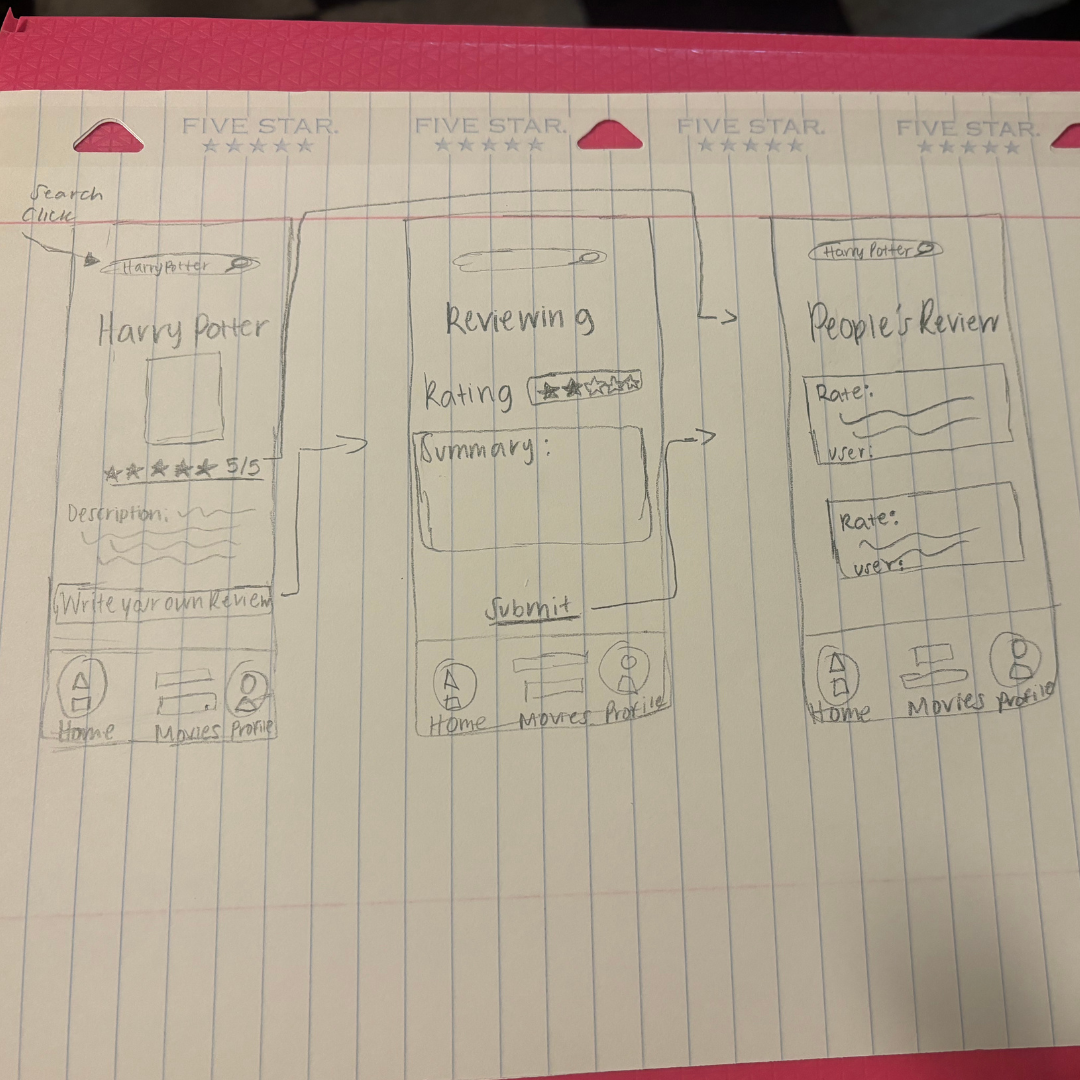 FIVE STAR.
FIVE STAR.
FIVE STAR.
FIVE STAR.
Search
Click
Harry Potter
Harry Potter
5/5
Description:
Write your own Review
Home
Movies
Profile
Reviewing
Rating
Summary:
Submit
Home
Movies
Profile
Harry Potter
People's Review
Rate:
user:
Rate:
user:
Home
Movies
Profile